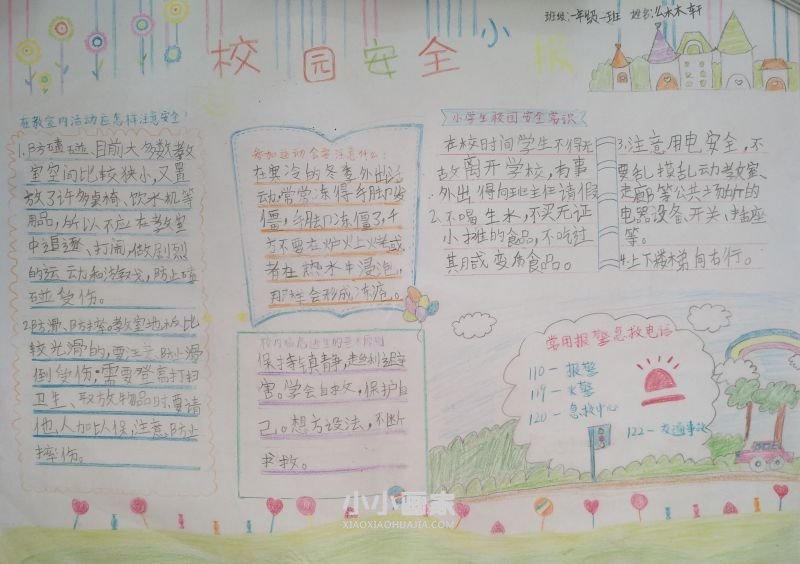 班级:一年级一班 姓名:幺沐轩
校园安全小报
在教室内活动应怎样注意安全?
1.防磕碰。目前大多数教
室空间比较狭小,又置
放了许多桌椅、饮水机等
用品,所以不应在教室
中追逐、打闹,做剧烈
的运动和游戏,防止磕
碰受伤。
2.防滑、防摔。教室地板比
较光滑的,要注意防止滑
倒受伤,需要登高打扫
卫生、取放物品时,要请
他人加以保,注意防止
摔伤。
参加运动会要注意什么:
在寒冷的冬季,外出活
动常常冻得手脚发
僵,手脚冻僵了,千
万不要在炉火上烤或
者在热水中浸泡,
那样会形成冻疮。
校内临危逃生的基本原则
保持镇静,趋利避
害。学会自救,保护自
己。想方设法,不断
求救。
小学生校园安全常识
在校时间学生不得无
故离开学校,有事
外出得向班主任请假
2.不喝生水,不买无证
小摊的食品,不吃过
其月或变质食品。
3.注意用电安全,不
要乱摸乱动教室、
走廊等公共场所的
电器设备、开关、插座
等。
4.上下楼梯向右行。
常用报警急救电话
110-报警
119-火警
120-急救中心
122-交通事故
小小画家
XIAOXIAOHUAJIA.COM